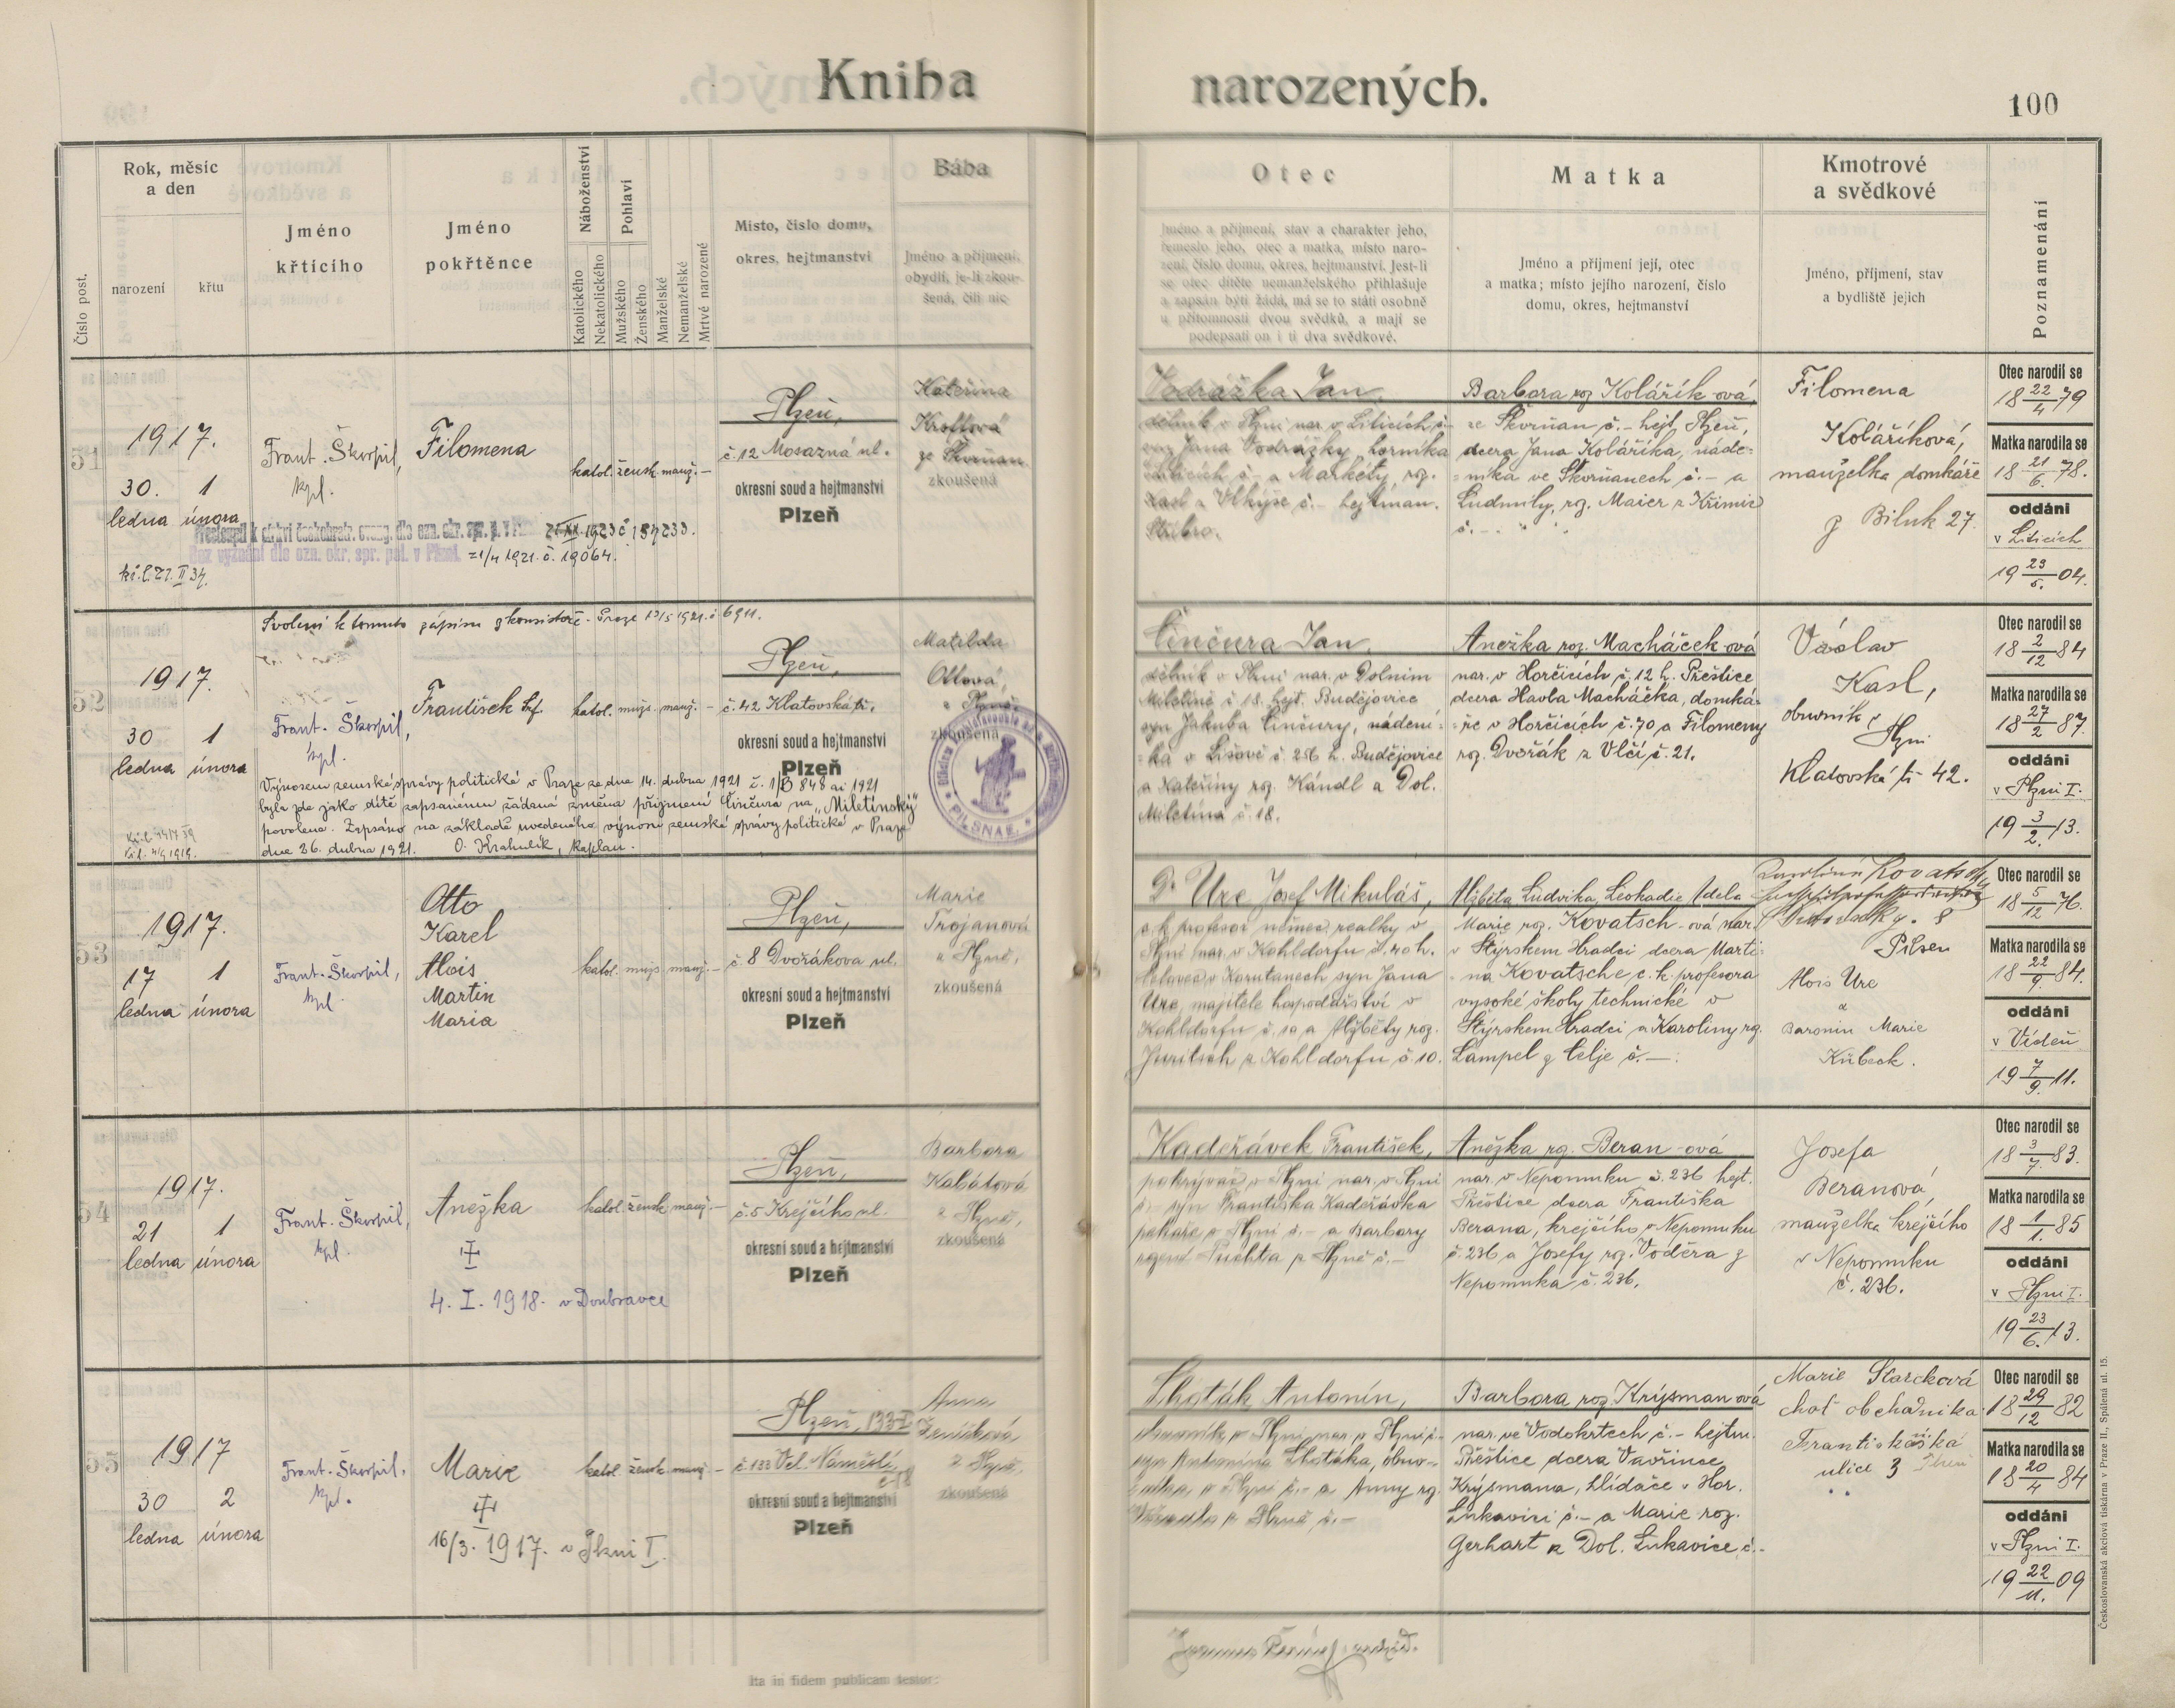 Kniha narozených.
100
Číslo post.
Rok, měsíc
a den
narození
křtu
Jméno
křticího
Jméno
pokřtěnce
Náboženství
Katolického
Nekatolického
Pohlaví
Mužského
Ženského
Manželské
Nemanželské
Mrtvě narozené
Místo, číslo domu,
okres, hejtmanství
Bába
Jméno a příjmení,
obydlí, je-li zkou-
šená, čili nic
Otec
Jméno a příjmení, stav a charakter jeho,
řemeslo jeho, otec a matka, místo naro-
zení, číslo domu, okres, hejtmanství. Jest-li
se otec dítěte nemanželského přihlašuje
a zapsán býti žádá, má se to státi osobně
u přítomnosti dvou svědků, a mají se
podepsati on i ti dva svědkové.
Matka
Jméno a příjmení její, otec
a matka; místo jejího narození, číslo
domu, okres, hejtmanství
Kmotrové
a svědkové
Jméno, příjmení, stav
a bydliště jejich
Poznamenání
51
1917.
30. 1
ledna února
Frant. Škorpil,
kpl.
Filomena
katol. žensk. manž. –
Plzeň,
č. 12 Mosazná ul.
okresní soud a hejtmanství
Plzeň
Kateřina
Kroftová
ze Skvrňan
zkoušená
Vodrážka Jan,
dělník v Plzni nar. v Liticích č.–
syn Jana Vodrážky, horníka
v Liticích č.– a Markéty, roz.
Kasl z Vlkýše č.– hejtman.
Stříbro.
Barbora roz. Kolářík-ová,
ze Skvrňan č.– hejt. Plzeň,
dcera Jana Kolaříka, náde-
níka ve Skvrňanech č.– a
Ludmily, roz. Maier z Křimic
č. –
Filomena
Kolaříková,
manželka domkáře
z Biluk 27.
Otec narodil se
18 22/4 79
Matka narodila se
18 21/6. 78.
oddáni
v Liticích
19 23/5. 04.
Přestoupil k církvi českobratr. evang. dle ozn. okr. spr. p. v Plzni 21.XII.1923 č 157233.
Bez vyznání dle ozn. okr. spr. pol. v Plzni. z 1/4 1921. č. 19064.
kř. l. 27. II 37.
52
Svolení k tomuto zápisu z konsistoře – Praze 13/5 1921. č 6911.
1917.
30 1
ledna února
Frant. Škorpil,
kpl.
František
katol. mužs. manž. –
Plzeň,
č. 42 Klatovská tř.
okresní soud a hejtmanství
Plzeň
Matilda
Ottová,
z Plzně,
zkoušená
PILSNAE.
Činčura Jan,
dělník v Plzni nar. v Dolním
Miletíně č 18. hejt. Budějovice
syn Jakuba Činčury, nádení-
ka v Lišově č. 256 h. Budějovice
a Kateřiny roz. Kándl z Dol.
Miletína č. 18.
Anežka roz. Macháček-ová
nar. v Horčicích č. 12 h. Přeštice
dcera Havla Macháčka, domká-
ře v Horčicích č. 70 a Filomeny
roz. Dvořák z Vlčí č. 21.
Václav
Kasl,
obuvník v
Plzni
Klatovská tř. 42.
Otec narodil se
18 2/12 84
Matka narodila se
18 27/2 87.
oddáni
v Plzni I.
19 3/2. 13.
Výnosem zemské správy politické v Praze ze dne 14. dubna 1921 č. 1/B 848 ai 1921
byla zde jako dítě zapsanému žádaná změna příjmení Činčura na „Miletínský“
povolena. Zapsáno na základě uvedeného výnosu zemské správy politické v Praze
dne 26. dubna 1921. O. Krahulík, kaplan.
53
1917.
17 1
ledna února
Frant. Škorpil,
kpl.
Otto
Karel
Alois
Martin
Maria
katol. mužs. manž. –
Plzeň,
č. 8 Dvořákova ul.
okresní soud a hejtmanství
Plzeň
Marie
Trojanová
z Plzně,
zkoušená
Dr Ure Josef Mikuláš,
c. k. profesor němec. realky v
Plzni nar. v Kohldorfu č. 10 h.
Celovec v Korutanech syn Jana
Ure, majitele hospodářství v
Kohldorfu č. 10 a Alžběty roz.
Juritsch z Kohldorfu č 10.
Alžběta Ludvika Leokadie Adela
Marie roz. Kovatsch-ová nar.
v Štýrském Hradci dcera Marti-
na Kovatsche c. k. profesora
vysoké školy technické v
Štýrském Hradci a Karoliny rz.
Lampel z Celje č. –
Karoline Kovatsch
Pilsen
Alois Ure
a
Baronin Marie
Kübeck.
Otec narodil se
18 5/12 76.
Matka narodila se
18 22/9. 84.
oddáni
v Vídeň
19 7/9. 11.
54
1917.
21 1
ledna února
Frant. Škorpil,
kpl.
Anežka
4. I. 1918. v Doubravce
katol. žensk. manž. –
Plzeň,
č. 5 Krejčího ul.
okresní soud a hejtmanství
Plzeň
Barbora
Kabátová
z Plzně,
zkoušená
Kadeřávek František,
pokrývač v Plzni nar. v Plzni
č. – syn Františka Kadeřávka
pekaře v Plzni č. – a Barbory
rozené Puchta z Plzně č. –
Anežka rz. Beran-ová
nar. v Nepomuku č. 236 hejt.
Přeštice dcera Františka
Berana, krejčího v Nepomuku
č. 236 a Josefy roz. Voděra z
Nepomuka č. 236.
Josefa
Beranová,
manželka krejčího
v Nepomuku
č. 236.
Otec narodil se
18 3/7. 83.
Matka narodila se
18 1/1. 85
oddáni
v Plzni I.
19 23/6. 13.
55
1917
30 2
ledna února
Frant. Škorpil,
kpl.
Marie
16/3. 1917. v Plzni I.
katol. žensk. manž. –
Plzeň, 133-I
č. 133 Vel. Náměstí
okresní soud a hejtmanství
Plzeň
Anna
z Plzně,
zkoušená
Lhoták Antonín,
syn Antonína Lhotáka, obuv-
níka v Plzni č.– a Anny rz.
z Plzně č.–
Barbora roz. Krýsman-ová
nar. ve Vodokrtech č. – hejtm.
Přeštice dcera Vavřince
Krýsmana, hlídače v Hor.
Lukavici č. – a Marie roz.
Gerhart z Dol. Lukavice, č. –
Marie Starcková
choť obchodníka
Františkáská
ulice 3 Plzeň
Otec narodil se
18 29/12 82
Matka narodila se
18 20/4 84
oddáni
v Plzni I.
19 22/11. 09
Ita in fidem publicam testor:
Českoslovanská akciová tiskárna v Praze II., Spálená ul. 15.